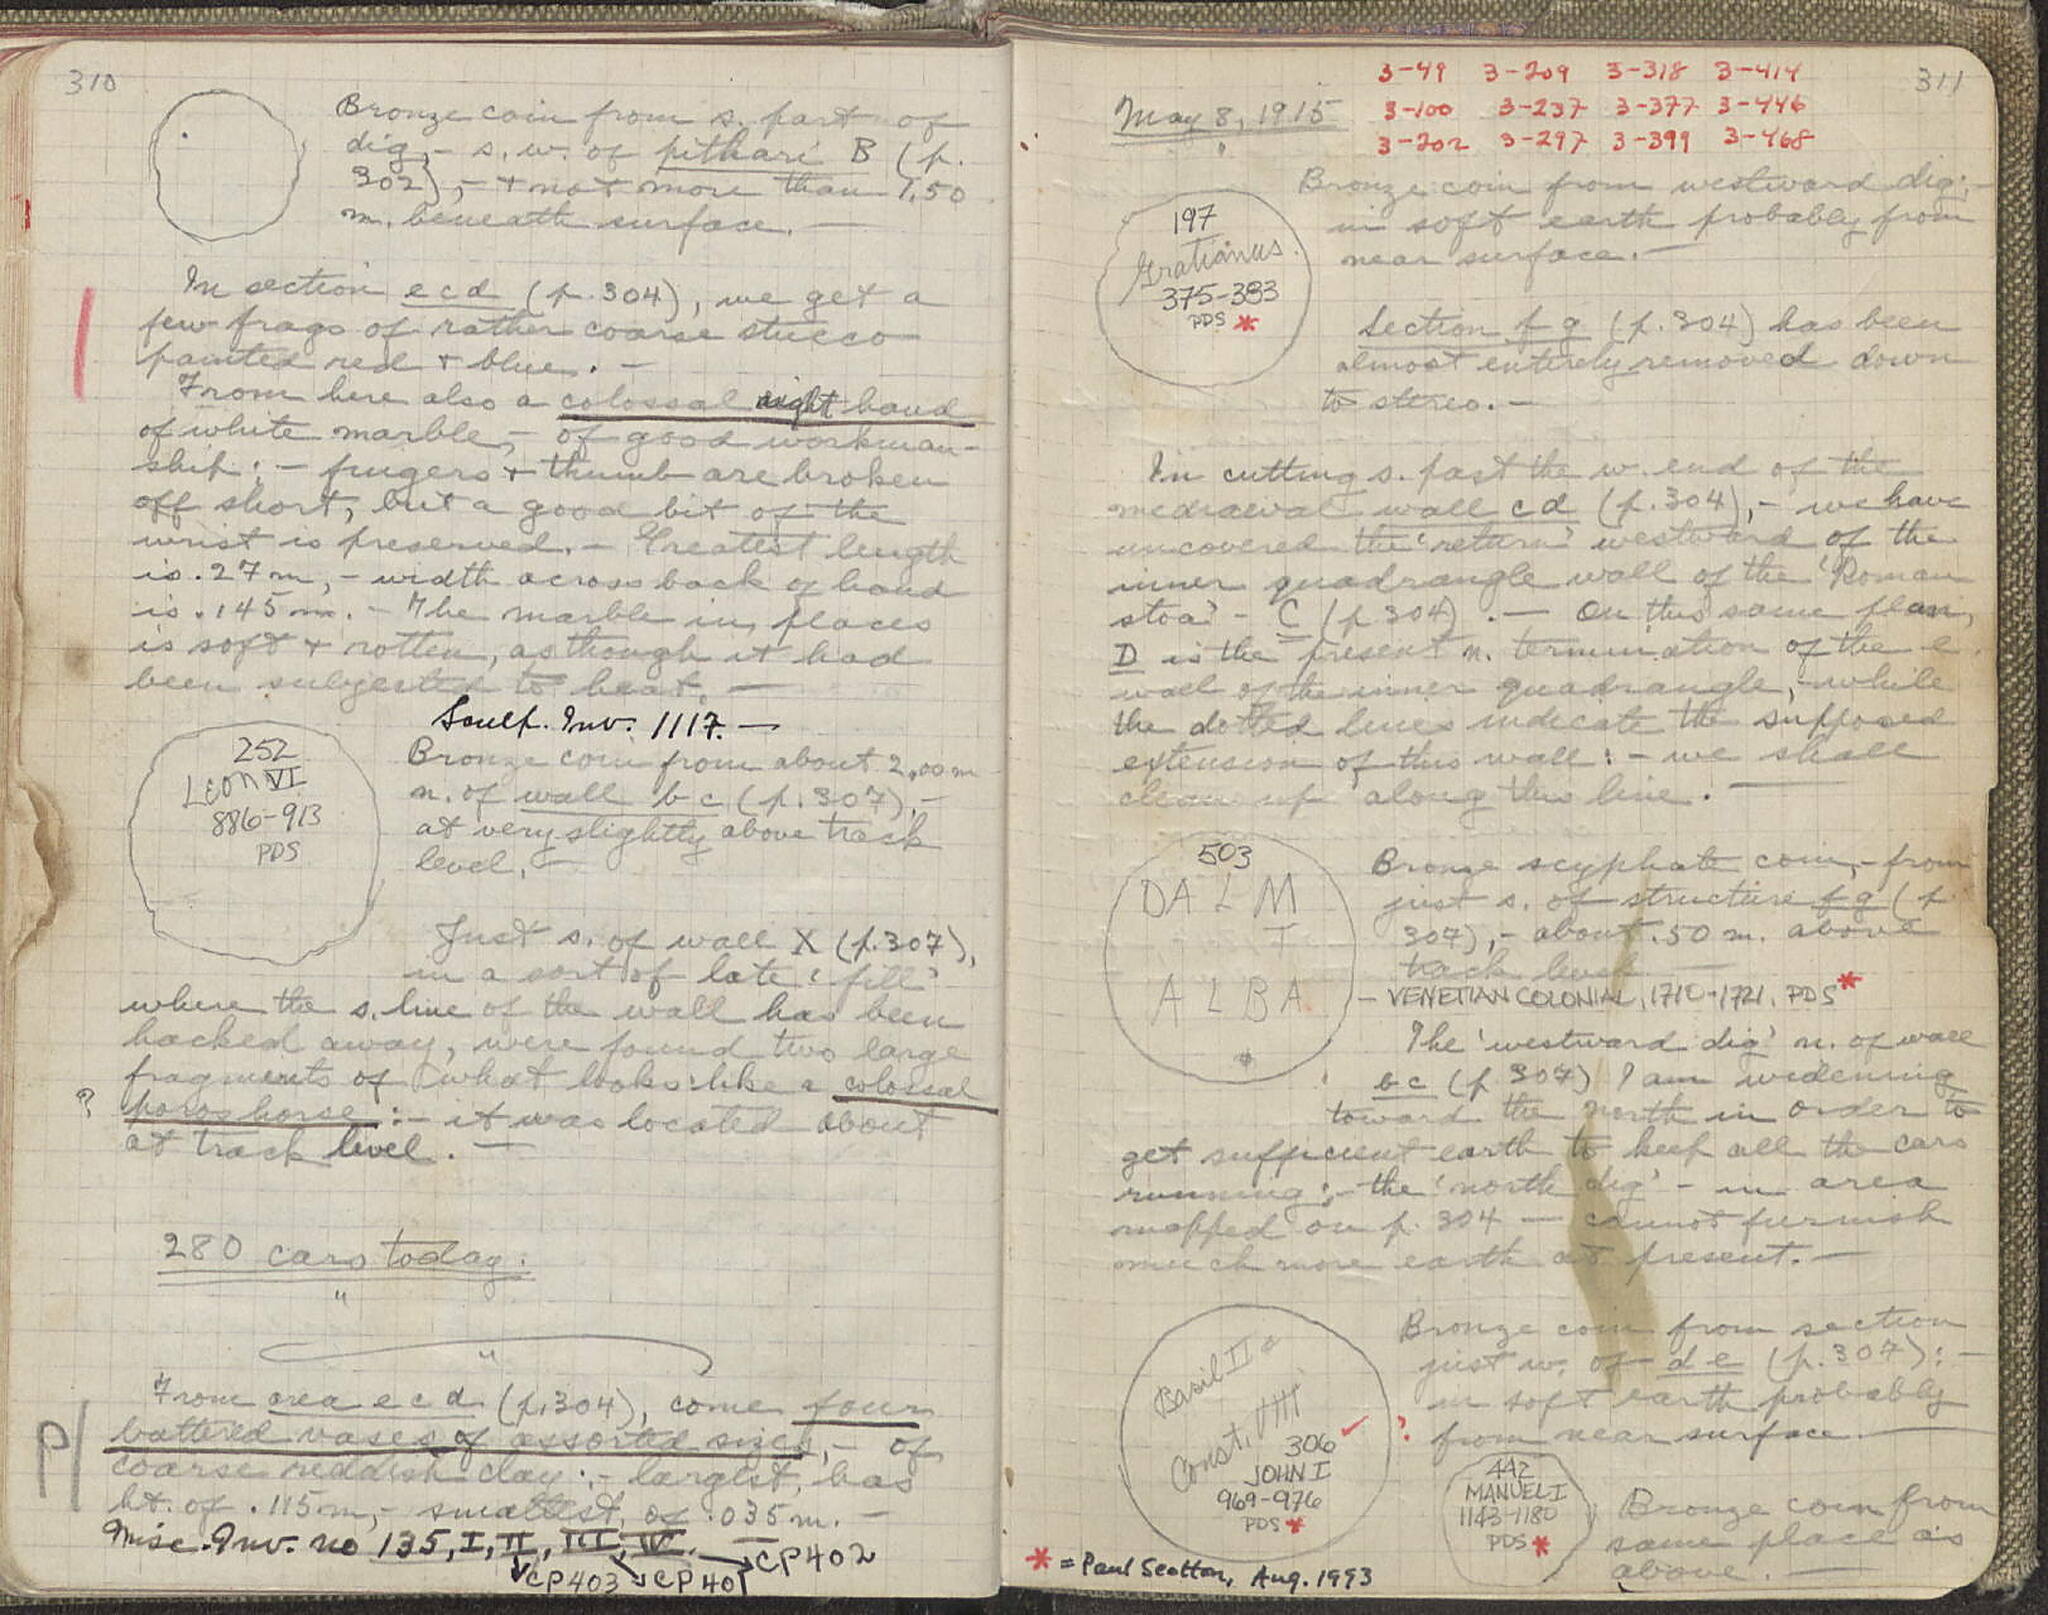 310
Bronze coin from s. part of
dig,- s.w. of pithari B (p.
302),- + not more than 1.50
m. beneath surface. —
In section ecd (p.304), we get a
few frags of rather coarse stucco
painted red + blue. —
From here also a colossal right hand
of white marble,- of good workman-
ship: - fingers + thumb are broken
off short, but a good bit of the
wrist is preserved. - Greatest length
is .27m,- width across back of hand
is .145m. - The marble in places
is soft + rotten, as though it had
been subjected to heat. —
Sculp. Inv. 1117. —
252
LEON VI
886-913
PDS
Bronze coin from about 2.00m
n. of wall bc (p.307),-
at very slightly above track
level. —
Just s. of wall X (p.307),
in a sort of late 'fill'
where the s. line of the wall has been
hacked away, were found two large
fragments of what looks like a colossal
? poros horse: - it was located about
at track level. —
280 cars today.
From area ecd (p.304), come four
battered vases of assorted sizes,- of
P/
coarse reddish clay: - largest, has
ht. of .115m,- smallest, of .035m. —
Misc. Inv. no 135, I, II, III, IV.
CP402
CP403 CP401
311
3-49 3-209 3-318 3-414
May 8, 1915
3-100 3-237 3-377 3-446
3-202 3-297 3-399 3-468
Bronze coin from westward dig;-
in soft earth probably from
near surface. —
197
Gratianus.
375-383
PDS *
Section fg (p.304) has been
almost entirely removed down
to stereo. —
In cutting s. past the w. end of the
mediaeval wall cd (p.304),- we have
uncovered the 'return' westward of the
inner quadrangle wall of the 'Roman
stoa' - C (p.304). — On this same plan,
D is the present n. termination of the e.
wall of the inner quadrangle,- while
the dotted lines indicate the supposed
extension of this wall: - we shall
clean up along this line. —
503
DALM
T
ALBA
*
Bronze scyphate coin,- from
just s. of structure fg (p
307),- about .50 m. above
track level —
- VENETIAN COLONIAL, 1710-1721, PDS *
The 'westward dig' n. of wall
bc (p 307) I am widening
toward the north in order to
get sufficient earth to keep all the cars
running;- the 'north dig' - in area
mapped on p. 304 — cannot furnish
much more earth at present. —
Basil II &
Const. VIII
306 ✓ ?
JOHN I
969-976
PDS *
Bronze coin from section
just w. of de (p.307): -
in soft earth probably
from near surface. —
442
MANUEL I
1143-1180
PDS *
Bronze coin from
same place as
above. —
* = Paul Scotton, Aug. 1993